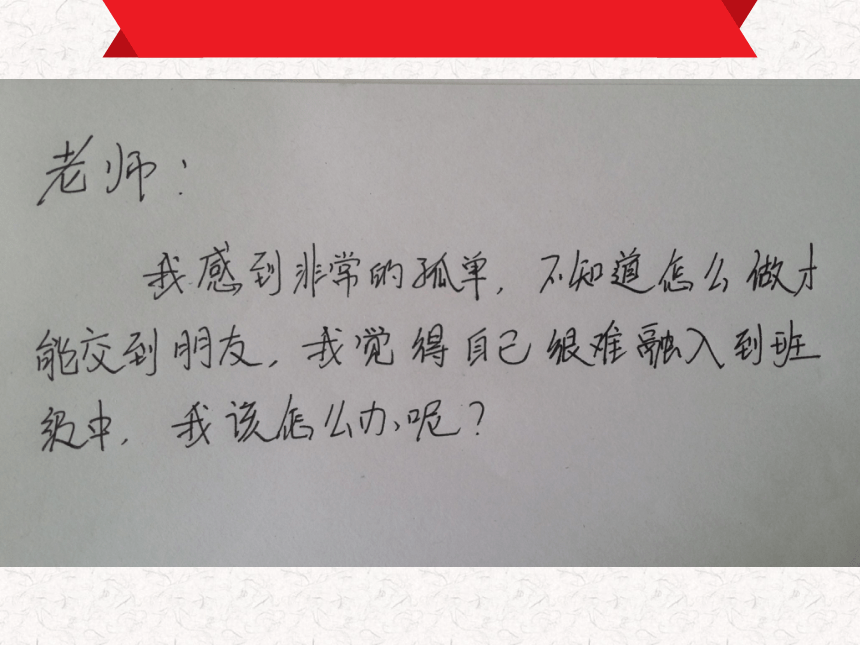 老师：
我感到非常的孤单，不知道怎么做才
能交到朋友，我觉得自己很难融入到班
级中，我该怎么办呢？